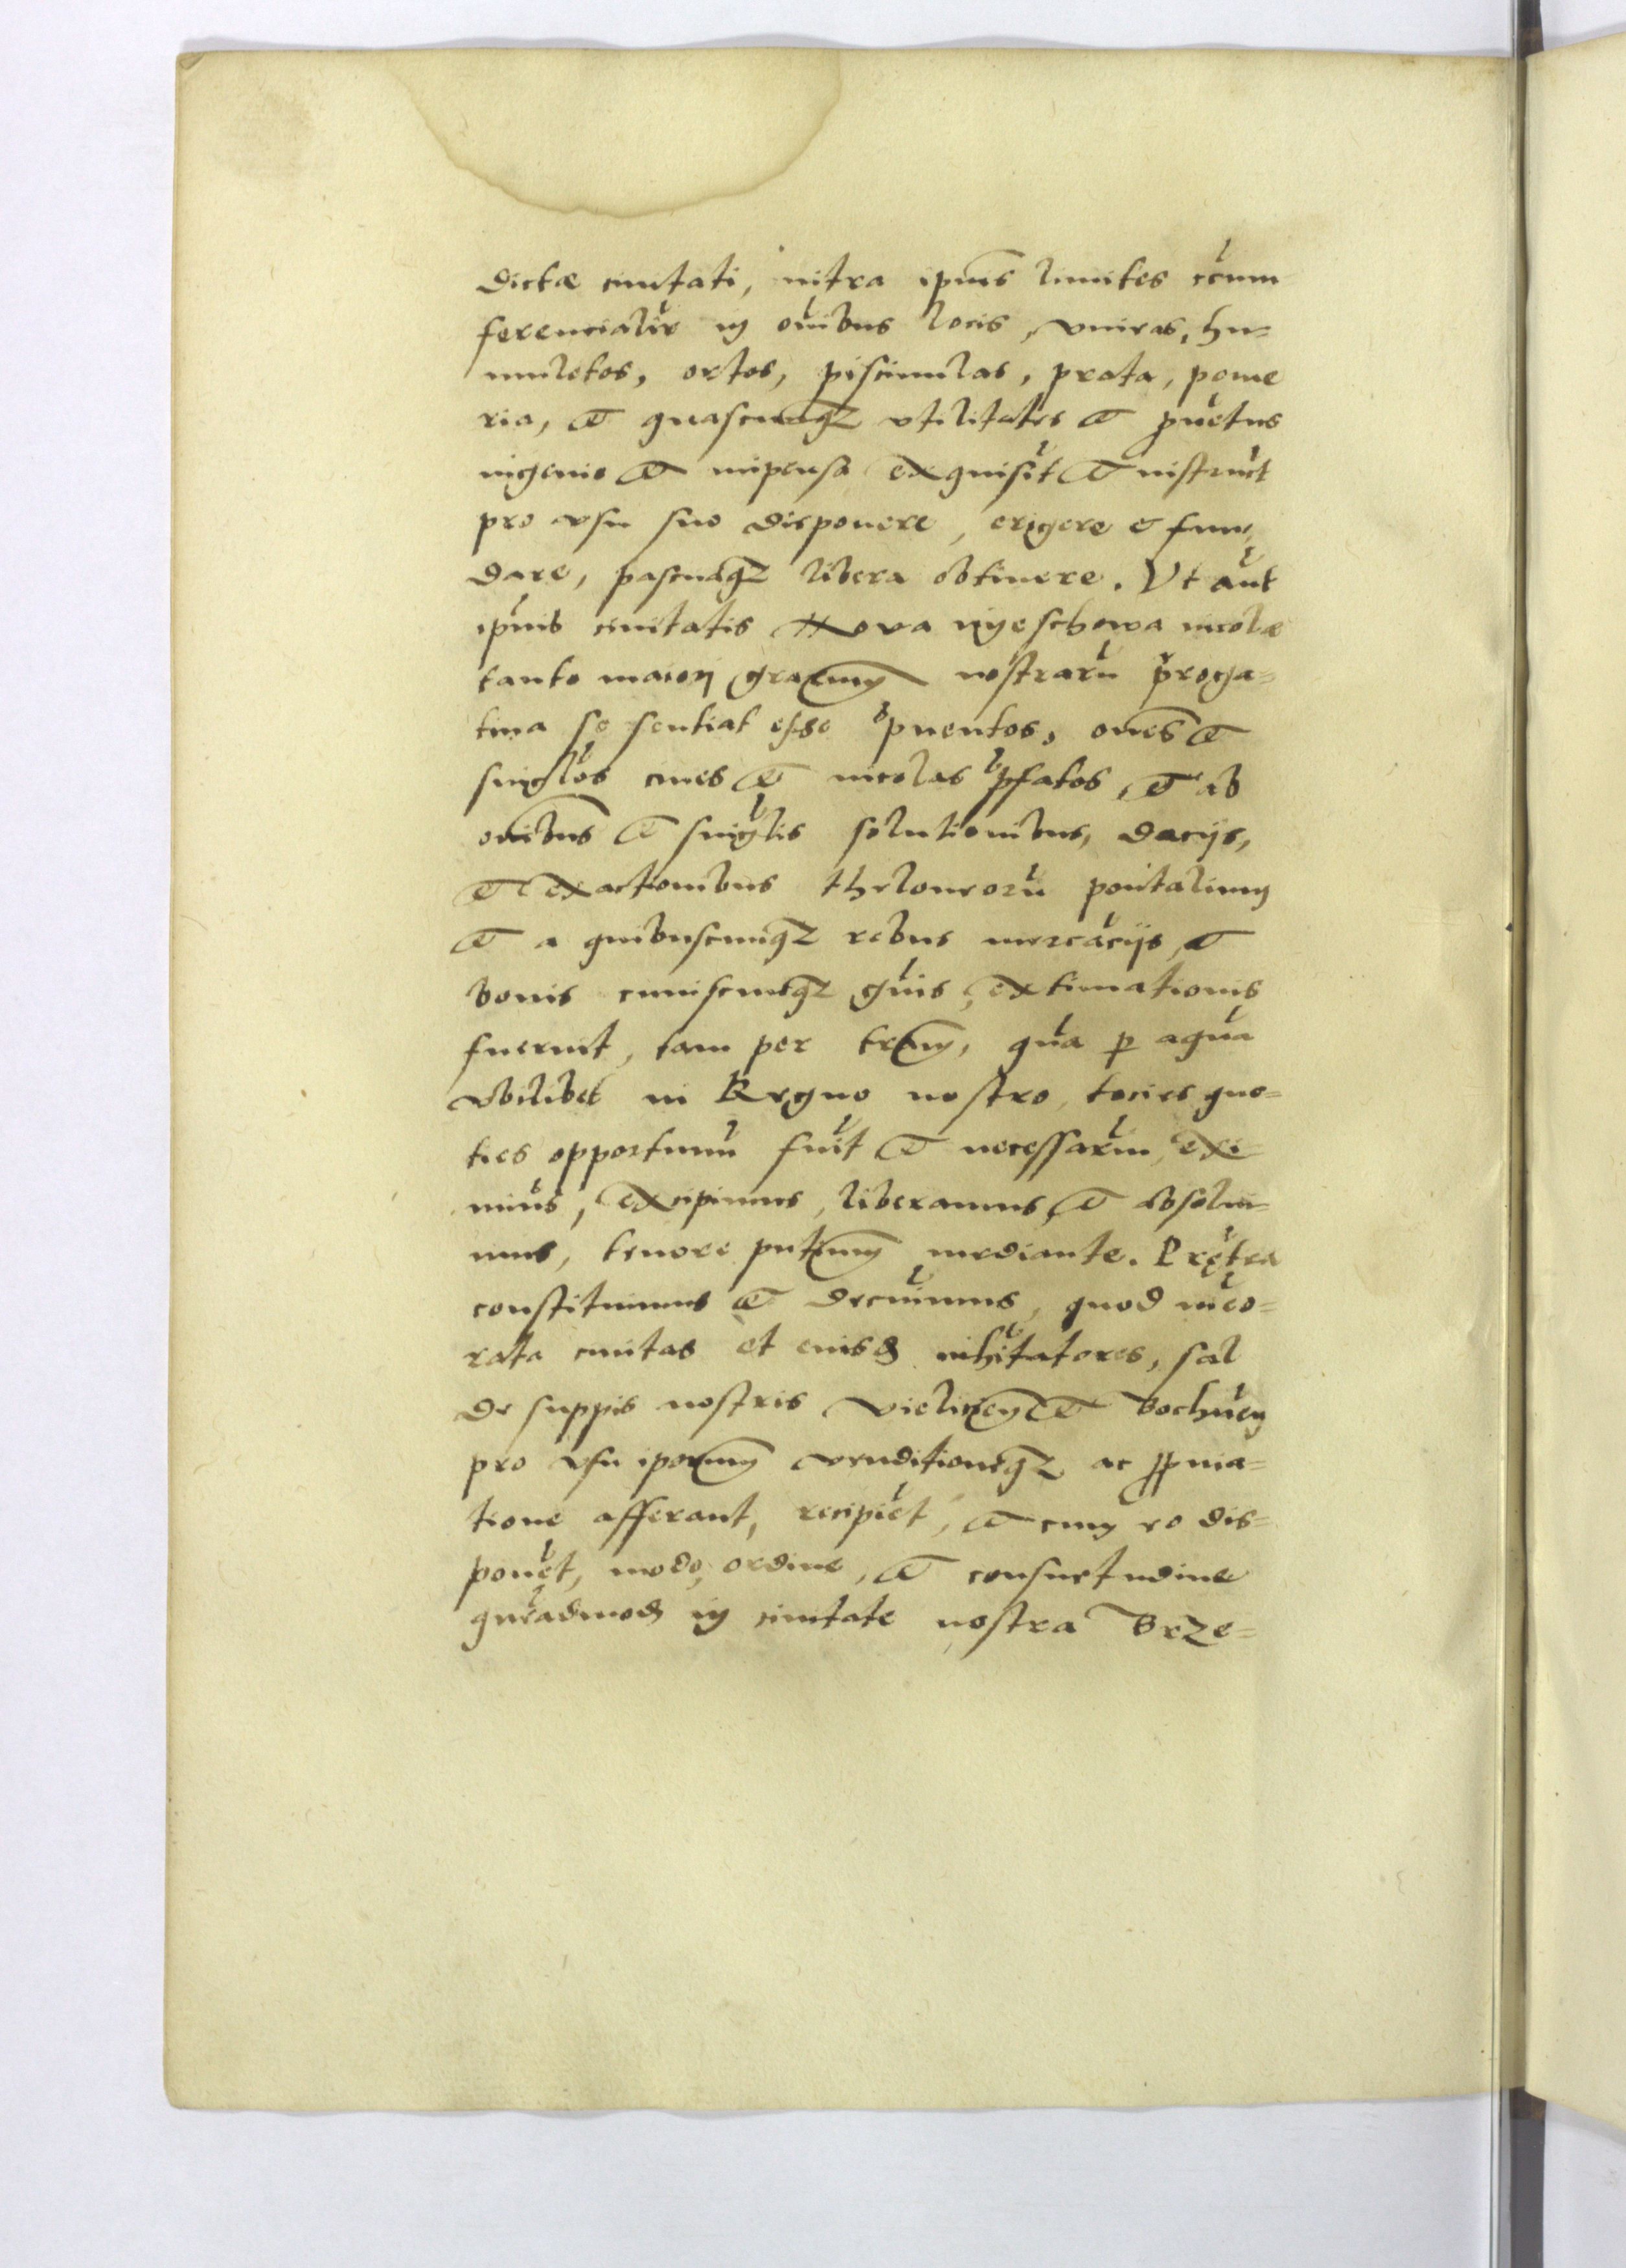 dictæ ciuitati, intra ipius limites ccum
ferencialir in oĩbus locis, vineas, hu=
muletos, ortos, piscinulas, prata, pome
ria, et quascunqz vtilitates et puetus
ingenio et impensa exquisit et instruct
pro vsu suo disponere, erigere & fun
dare, pascuaqz libera obtinere. Vt aut
ipius ciuitatis Noua nyeschowa incolæ
tanto maiori graxum nostraru proga=
tiua se sentiat esse puentos, oẽs et
singlos ciues et incolas pfatos, et ab
oĩbus et singlis solutionibus, dacijs,
et exactionibus theloneoru pontalium
et a quibuscunqz rebus mercacijs, et
bonis cuiuscunqz gnis, extimationis
fuerint, tam per tram, qua p aqua
vbilibet in Regno nostro, tocies quo=
ties opportunu fuit et necessariu, exi=
mius, excipimus, liberamus, et absolui=
mus, tenore pntium mediante. Pretea
constituimus et decrnimus, quod meo=
rata ciuitas et eiusd inhitatores, sal
de suppis nostris Vieliczen et Bochnen
pro vsu iporum venditioneqz, ac ppina=
tione afferant, recipiet, et cum eo dis=
ponet, modo, ordine, et consuetudine
queadmod in ciuitate nostra Brze=